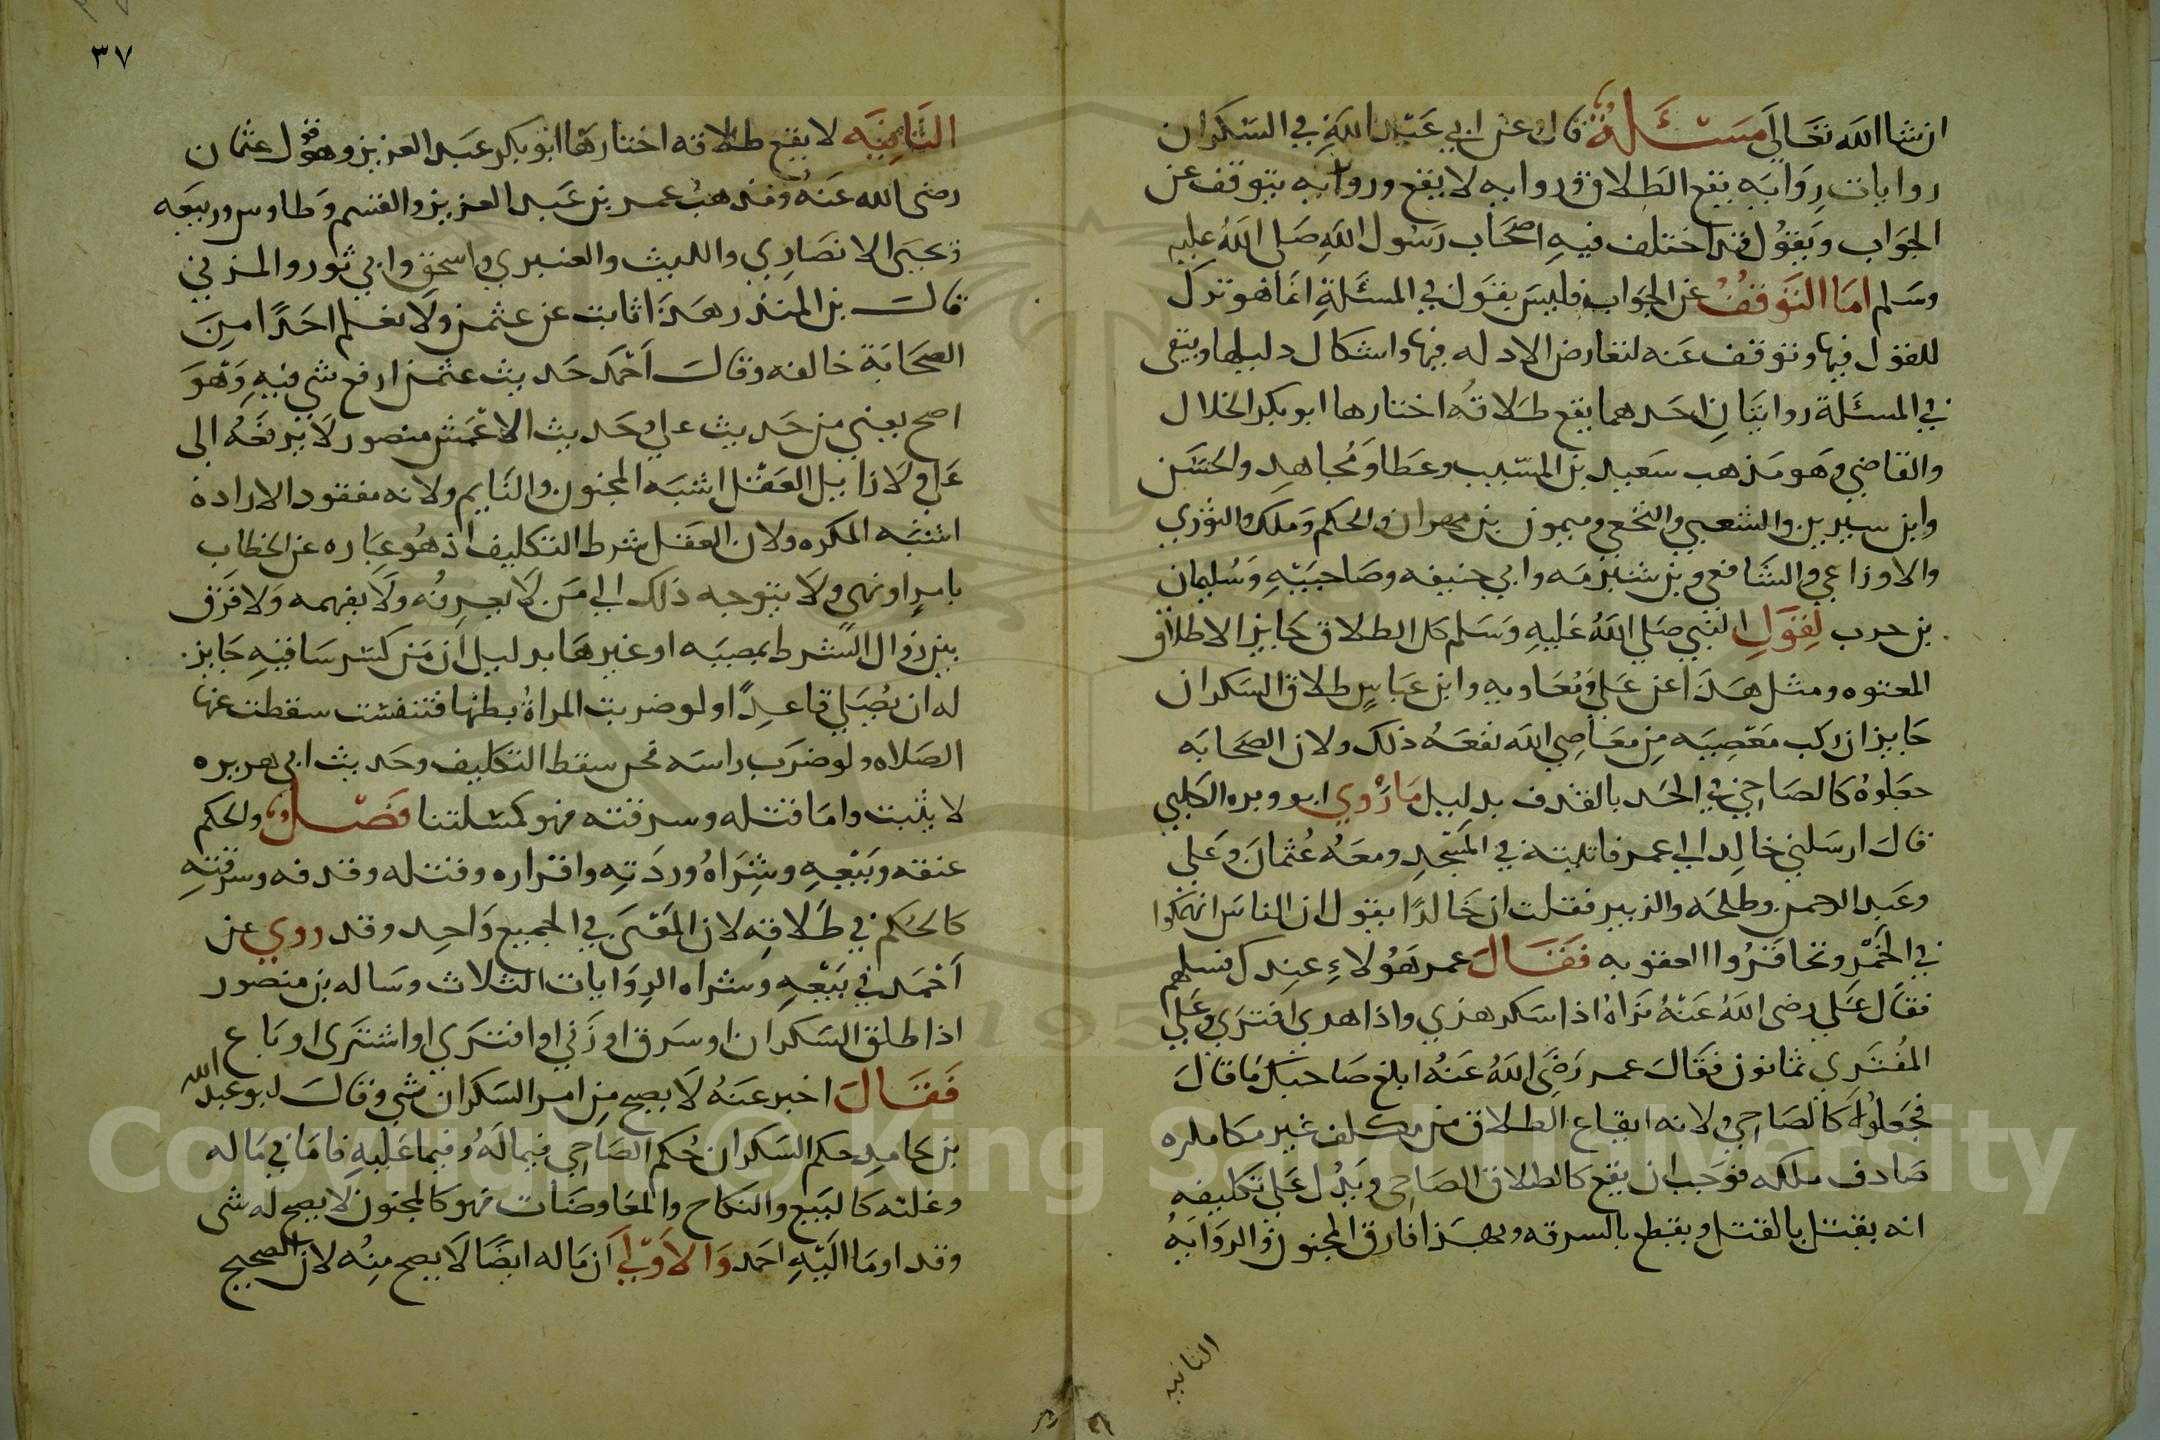 ان شا الله تعالى مسئلة قال عن ابي عبد الله في السكران
روايات رواية يقع الطلاق ورواية لا يقع ورواية يتوقف عن
الجواب ويقول قد اختلف فيه اصحاب رسول الله صلى الله عليه
وسلم اما التوقف عن الجواب فليس بقول في المسئلة انما هو ترك
للقول فيها وتوقف عنه لتعارض الادله فيها واشكال دليلها ويبقى
في المسئلة روايتان احدهما يقع طلاقه اختارها ابو بكر الخلال
والقاضي وهو مذهب سعيد بن المسيب وعطا ومجاهد والحسن
وابن سيرين والشعبي والنخعي وميمون بن مهران والحكم وملك والثوري
والاوزاعي والشافعي وبن شبرمه وابي حنيفه وصاحبيه وسليمان
بن حرب لقول النبي صلى الله عليه وسلم كل الطلاق جايز الا طلاق
المعتوه ومثل هذا عن علي ومعاويه وابن عباس طلاق السكران
جايز ان ركب معصيه من معاصي الله نفعه ذلك ولان الصحابه
جعلوه كالصاحي في الحد بالقذف بدليل ما روي ابو وبره الكلبي
قال ارسلني خالد الى عمر فاتيته في المسجد ومعه عثمان وعلي
وعبد الرحمن وطلحه والزبير فقلت ان خالدا يقول ان الناس انهمكوا
في الخمر وتحاقروا العقوبه فقال عمر هولاء عندك فسلهم
فقال علي رضي الله عنه نراه اذا سكر هذي واذا هدى افترى وعلى
المفتري ثمانون فقال عمر رضي الله عنه ابلغ صاحبك ما قال
فجعلوه كالصاحي ولانه ايقاع الطلاق من مكلف غير مكره
صادف ملكه فوجب ان يقع كالطلاق الصاحي ويدل على تكليفه
انه يقتل بالقتل ويقطع بالسرقه وبهذا فارق المجنون والرواية
الثانيه
٣٧
الثانيه لا يقع طلاقه اختارها ابو بكر عبد العزيز وهو قول عثمان
رضى الله عنه ومذهب عمر بن عبد العزيز والقسم وطاوس وربيعه
ويحيى الانصاري والليث والعنبري واسحق وابي ثور والمزني
قال بن المنذر هذا ثابت عن عثمن ولا نعلم احدا من
الصحابة خالفه وقال احمد حديث عثمن ارفع شي فيه وهو
اصح يعني من حديث علي وحديث الاعمش منصور لا يرفعه الى
علي ولا زايل العقل اشبه المجنون والنايم ولانه مفقود الارادة
اشبه المكره ولان العقل شرط التكليف اذ هو عباره عن الخطاب
بامر او نهي ولا يتوجه ذلك الى من لا يعرفه ولا يفهمه ولا فرق
بين زوال الشرط بمعصيه او غيرها بدليل ان من كسر ساقيه جايز
له ان يصلي قاعدا او لو ضربت المراة بطنها فتنفست سقطت عنها
الصلاه ولو ضرب راسه فجن سقط التكليف وحديث ابي هريره
لا يثبت واما قتله وسرقته فهو كمسئلتنا فصل والحكم
عتقه وبيعه وشراه وردته واقراره وقتله وقذفه وسرقته
كالحكم في طلاقه لان المعنى في الجميع واحد وقد روي عن
احمد في بيعه وشراه الروايات الثلاث وساله بن منصور
اذا طلق السكران او سرق او زني او افترى او اشترى او باع
فقال اخبر عنه لا يصح من امر السكران شي وقال ابو عبد الله
بن حامد حكم السكران حكم الصاحي فيما له وفيما عليه فاما في ما له
وعليه كالبيع والنكاح والمعاوضات فهو كالمجنون لا يصح له شى
وقد اوما اليه احمد والاولى ان ما له ايضا لا يصح منه لان الصحيح
Copyright © King Saud University